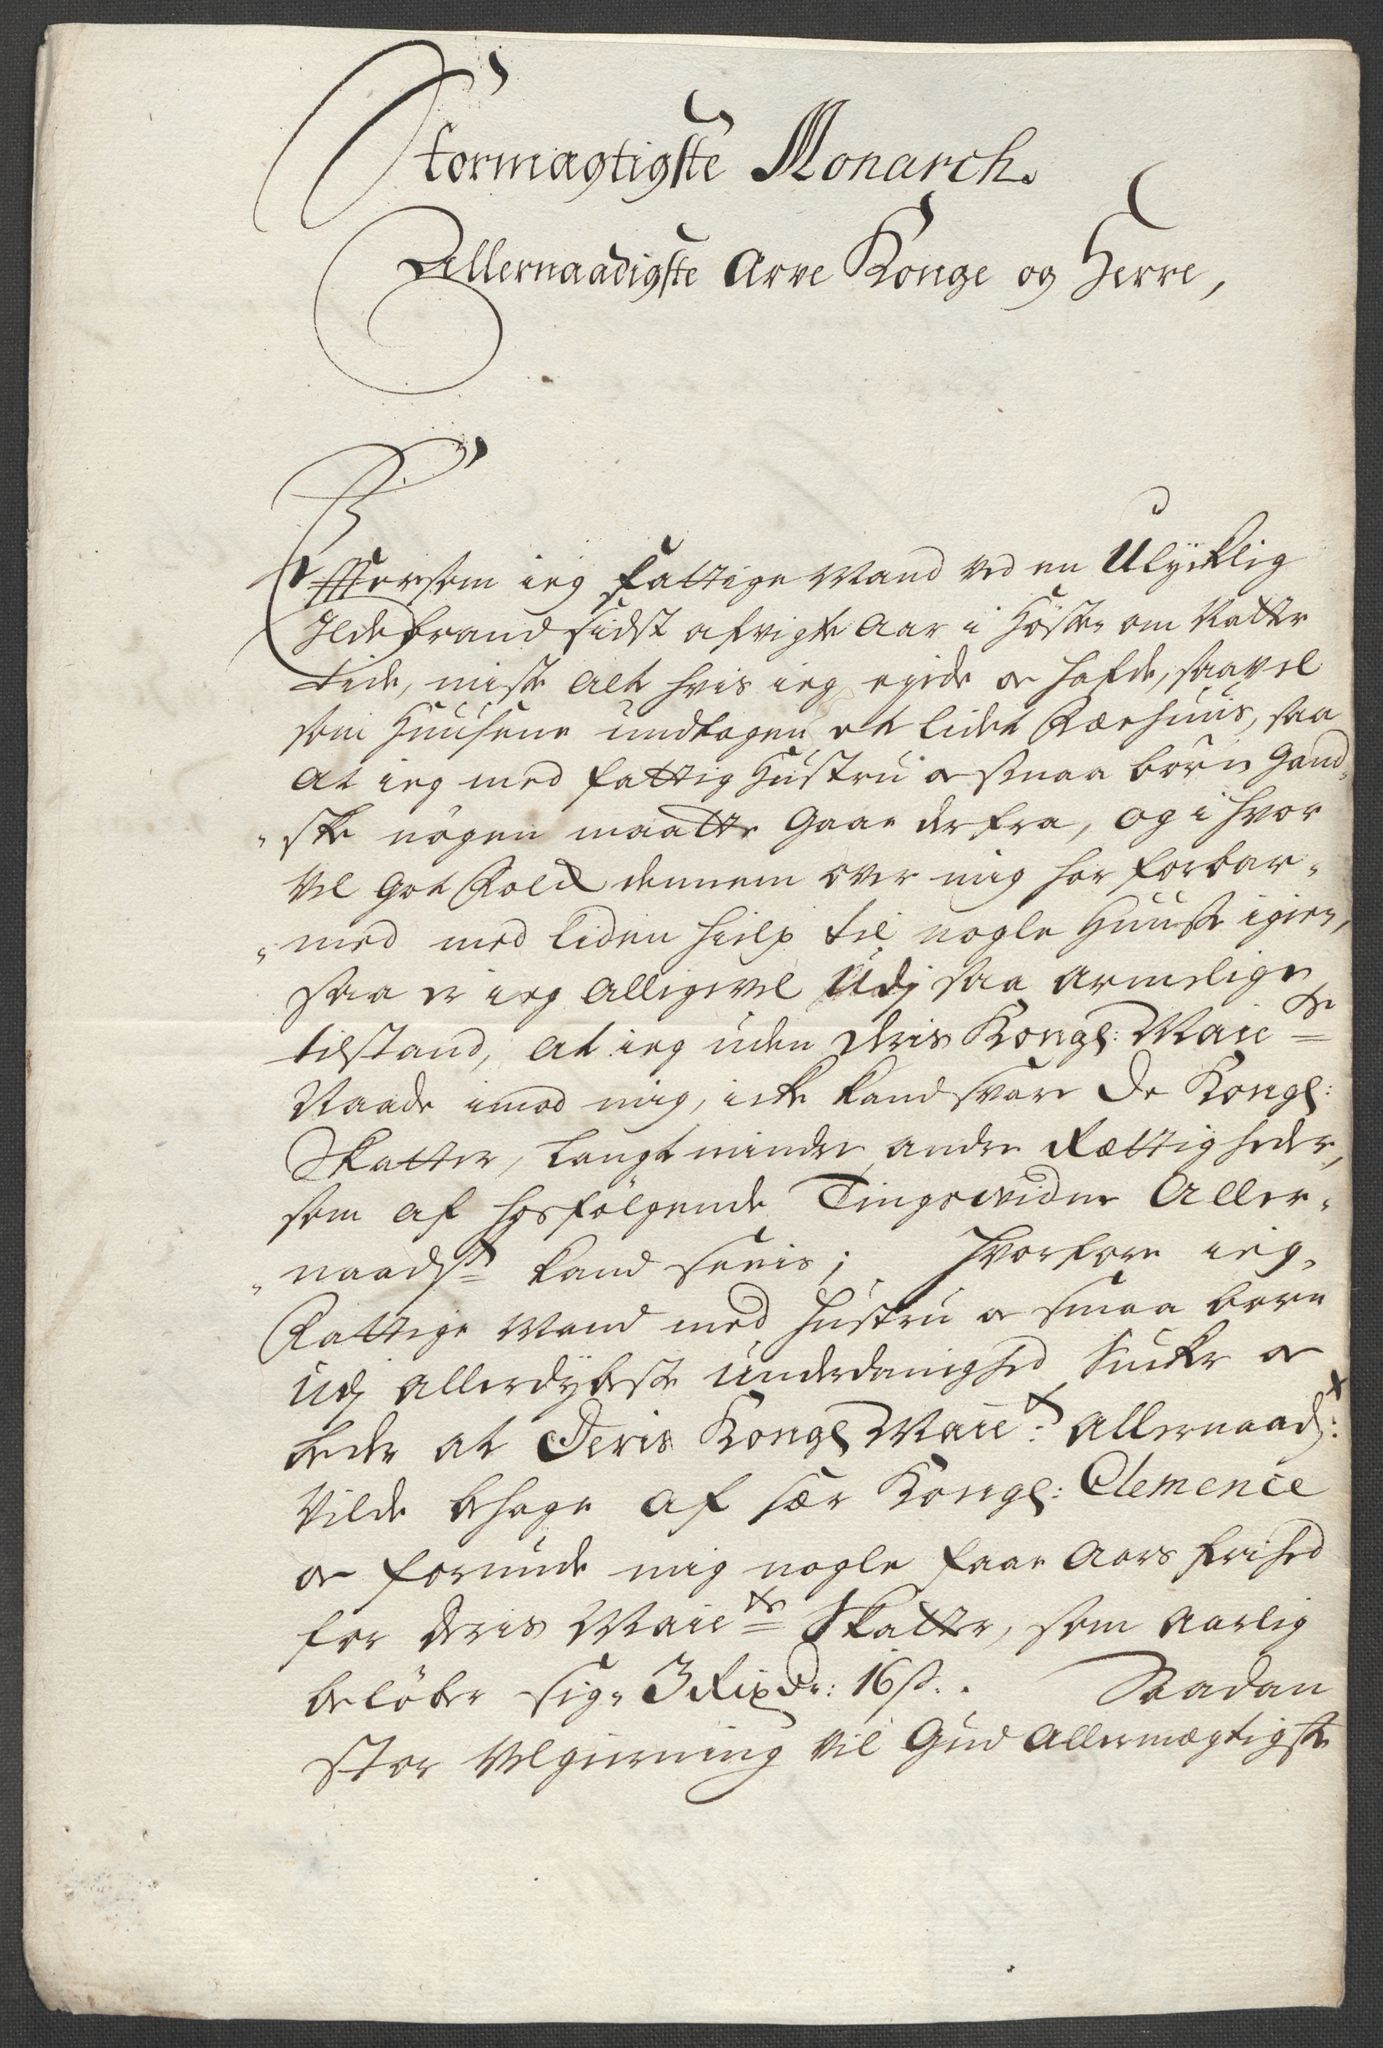 Stormagtigste Monarch.
Allernaadigste Arve Konge og Herre,
Effterson ieg fattige Mand ved en Ulyklig
Ildebrand sidst afvigte Aar i Høste om Natte
tide, miste Alt hvis ieg eyede og hafde, saavel
som Huusene undtagen et lidet Fæehuus, saa
At ieg med fattig Hustru og smaa børn Gand-
ske nøgen maatte Gaae derfra, og i hvor
vel Got Folck dennem over mig har forbar-
med med liden hielp til nogle Huuse igien,
saa er ieg Alligevel Udj saa armelige
tilstand, At ieg uden Deris Kongl: Maiets
Naade imod mig, icke kand svare De Kongl:
Skatter, langt mindre andre Rættigheder,
som af hosfølgende Tingsvidne Aller-
naadst kand sees; Hvorfore ieg
Fattige Mand med Hustru og smaa børn
Udj Allerdybeste Underdanighed sucker og
beder at Deris Kongl Maiet: Allernaadst:
Vilde behage af sær Kongl: Clemence
og forunde mig nogle faae Aars frihed
for Deris Maiets Skatter, som Aarlig
beløber sig 3 Rixdr: 16 s:. Saadan
stor Velgierning vil Gud Allermegtigste